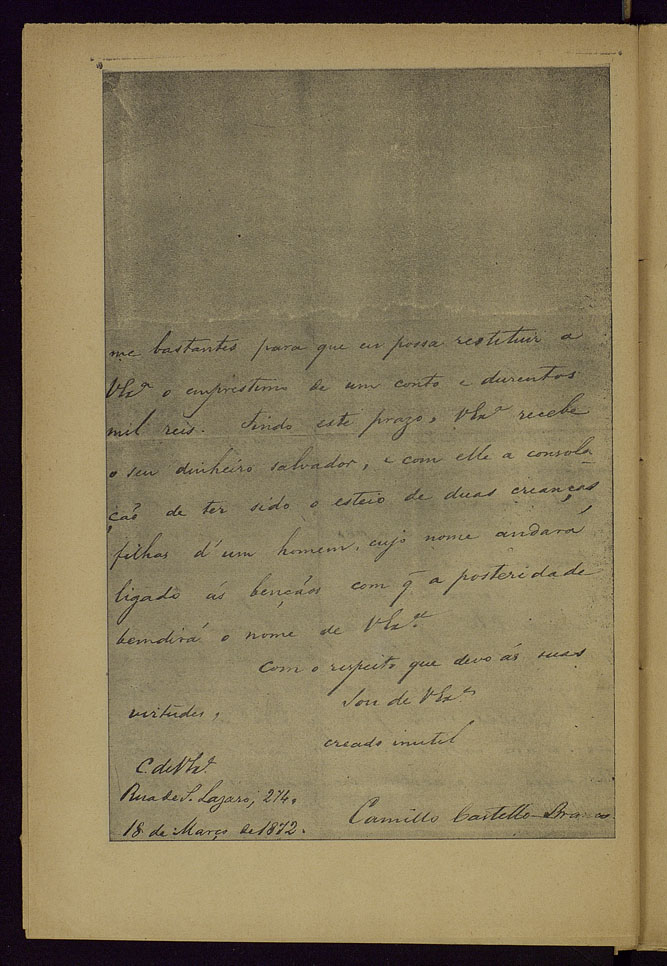 me bastantes para que eu possa restituir a
VExª o emprestimo de um conto e duzentos
mil reis. Findo este prazo, VExª recebe
o seu dinheiro salvador, e com elle a consola-
ção de ter sido o esteio de duas crianças
filhas d'um homem, cujo nome andará
ligado ás bençãos com q̃ a posteridade
bemdirá o nome de VExª
Com o respeito que devo ás suas
virtudes,
Sou de VExª
creado inutil
C. de VExª
Rua de S. Lazaro, 274.
18 de Março de 1872.
Camillo Castello-Branco